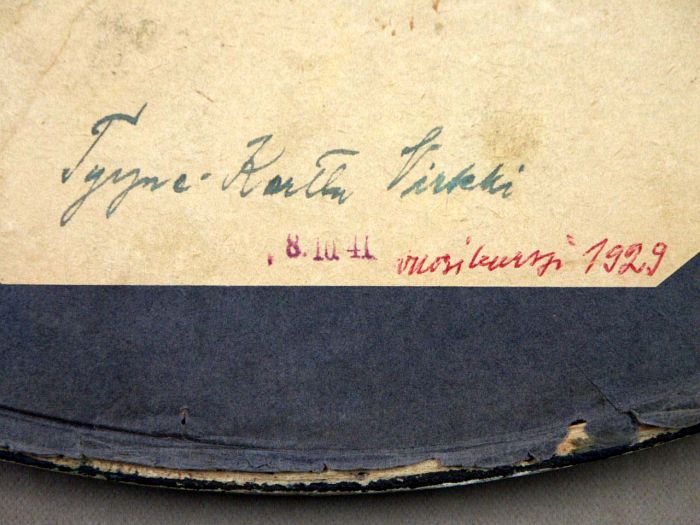 Tyyne-Kerttu Virkki
8.10.41 vuosikurssi 1929